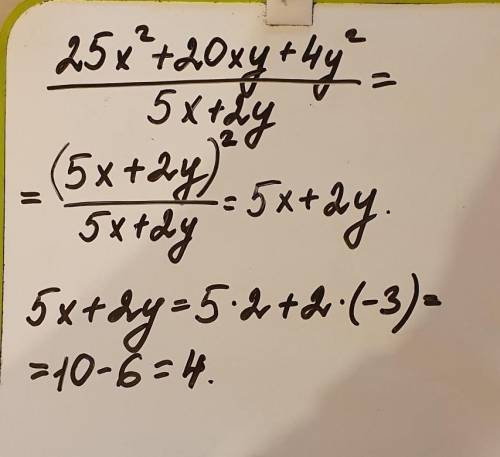 25x²+20xy+4y²
5x+2y
=
= (5x+2y)²
5x+2y
= 5x+2y.
5x+2y=5·2+2·(-3)=
=10-6=4.